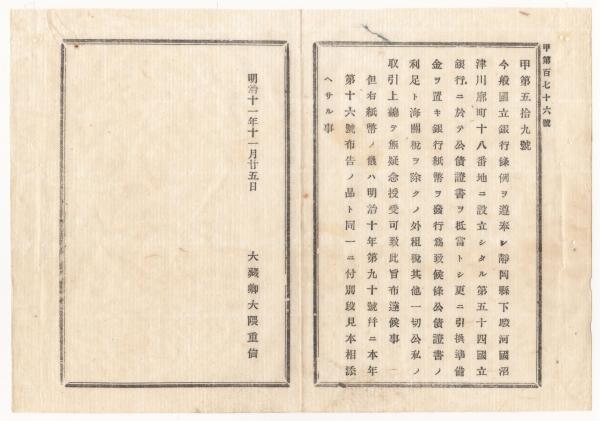 甲第百七十六號
甲第五拾九號
今般國立銀行條例ヲ遵奉シ靜岡縣下駿河國沼
津川廓町十八番地ニ設立シタル第五十四國立
銀行ニ於テ公債證書ヲ抵當トシ更ニ引換準備
金ヲ置キ銀行紙幣ヲ發行爲致候條公債證書ノ
利足ト海關稅ヲ除クノ外租稅其他一切公私ノ
取引上總テ無疑念授受可致此旨布達候事
但右紙幣ノ儀ハ明治十年第九十號幷ニ本年
第十六號布告ノ品ト同一ニ付別段見本相添
ヘサル事
明治十一年十一月廿五日
大藏卿大隈重信